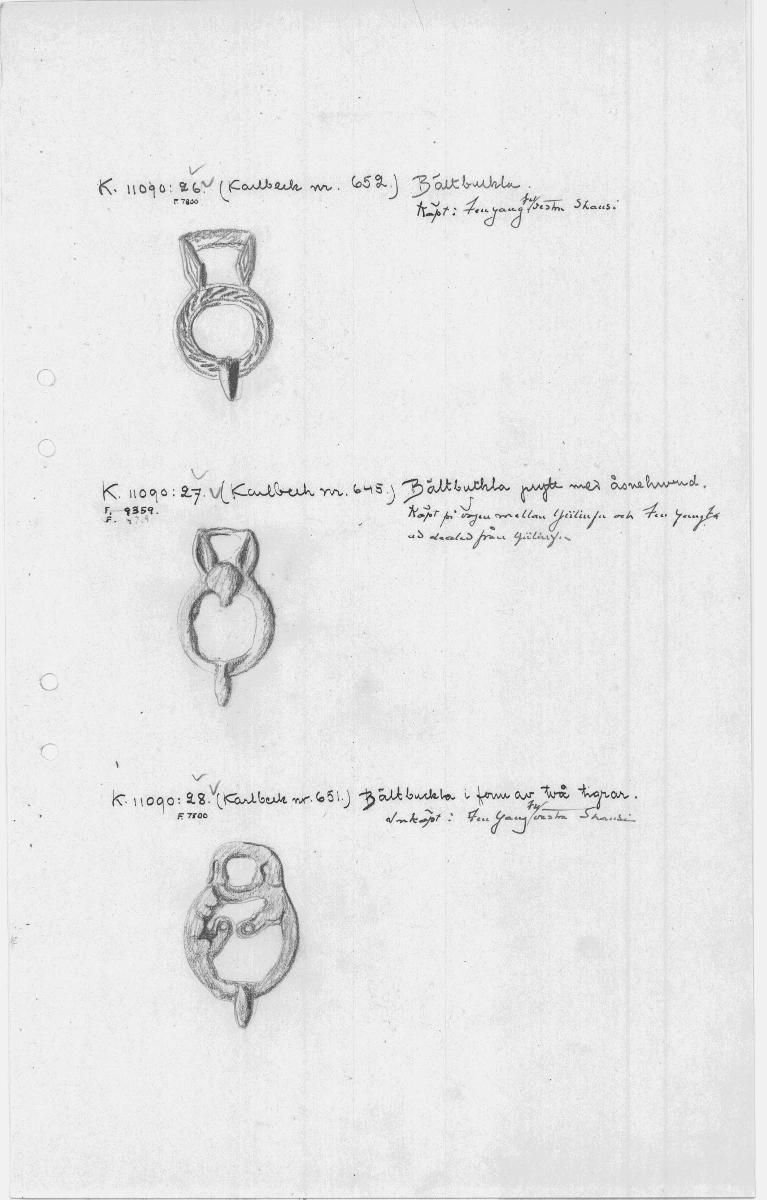 K. 11090: 26. (Karlbeck nr. 652.) Bältbuckla.
F. 7800
Köpt: Fenyang fu/västra Shansi
K. 11090: 27. (Karlbeck nr. 645.) Bältbuckla prytt med åsnehuvud.
F. 9359.
F.
Köpt på vägen mellan och Fen yang fu
från
K. 11090: 28. (Karlbeck nr. 651.) Bältbuckla i form av två tigrar.
F. 7800
Inköpt: Fen Yang fu/västra Shansi